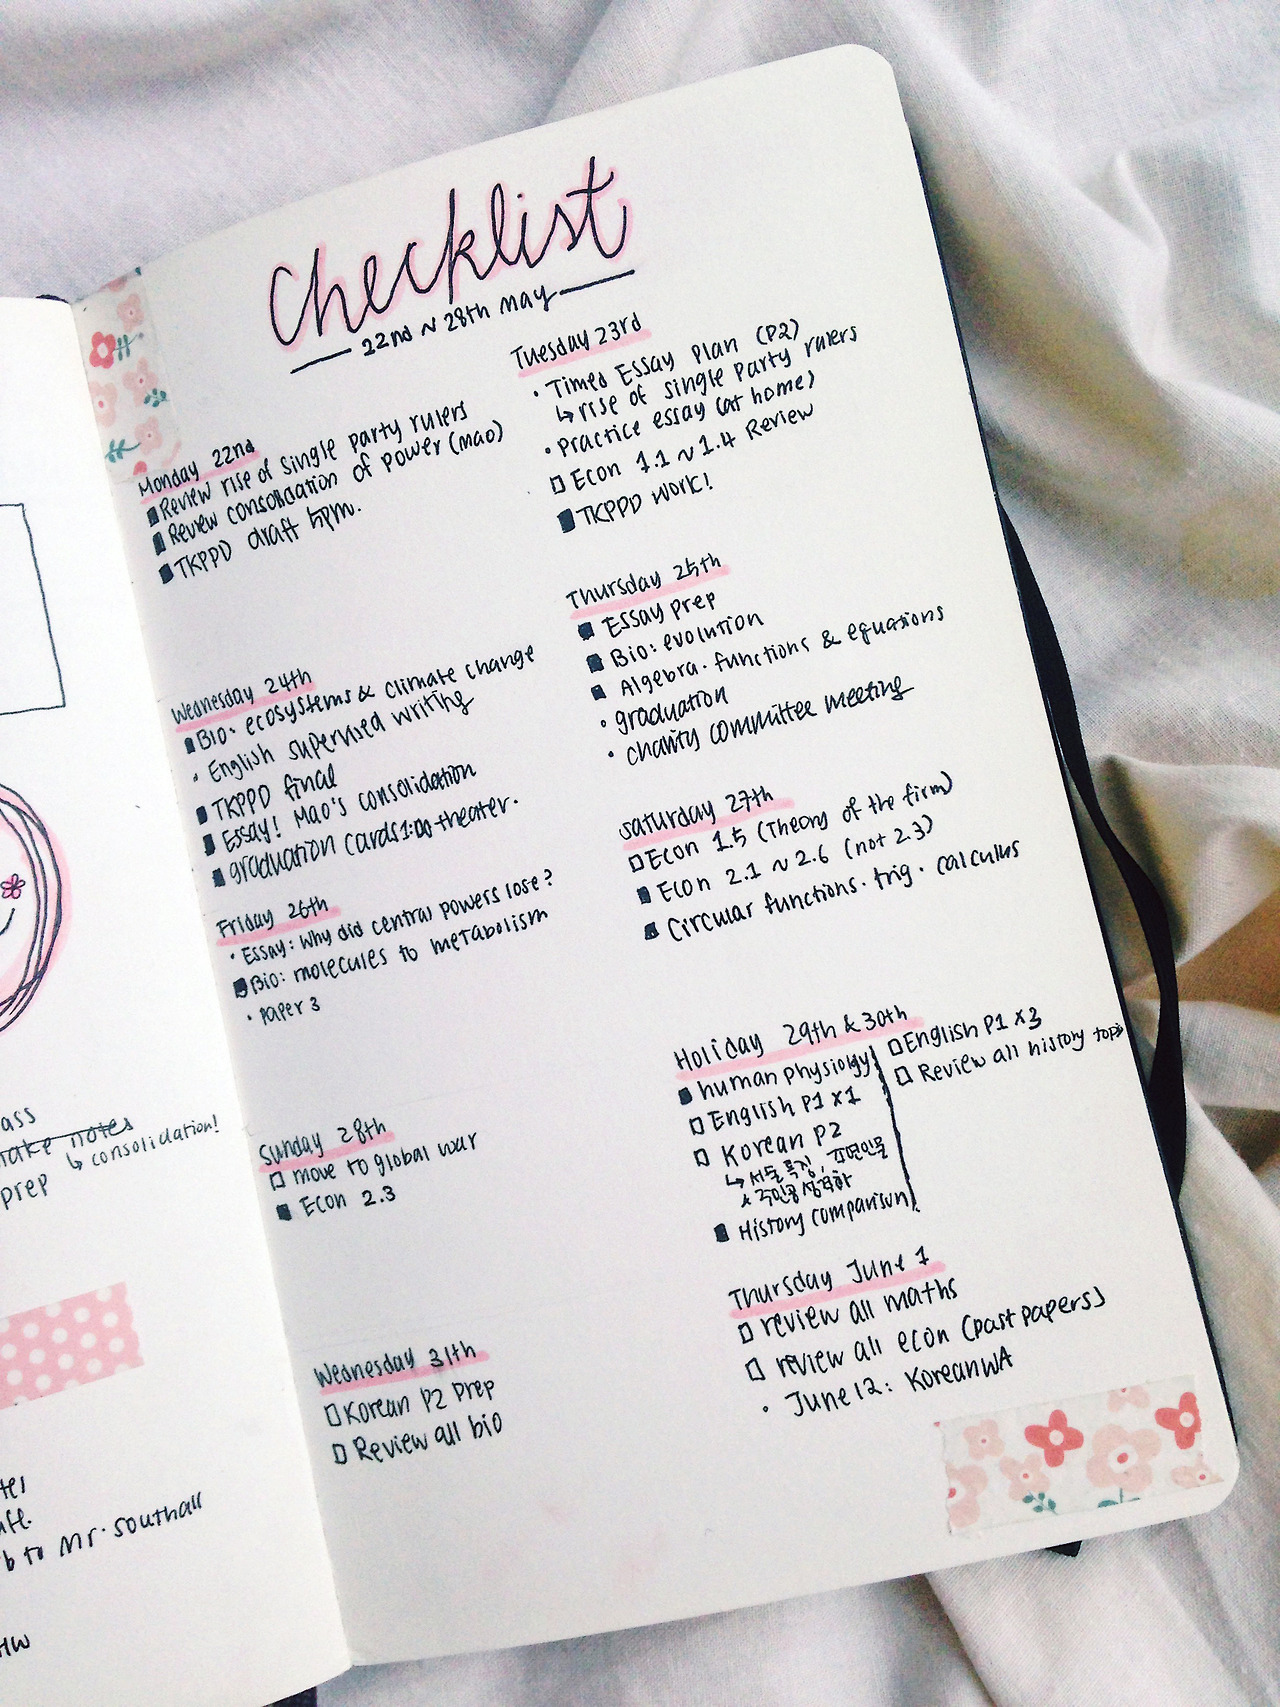 Checklist
22nd ~ 28th May
Monday 22nd
Review rise of single party rulers
Review consolidation of power (mao)
TKPPD draft 5pm.
Tuesday 23rd
Timed Essay Plan (P2)
↳ rise of single party rulers
Practice essay (at home)
Econ 1.1 ~ 1.4 Review
TKPPD work!
Wednesday 24th
Bio: ecosystems & climate change
English supervised writing
TKPPD final
Essay! Mao's consolidation
graduation cards 1:00 theater.
Thursday 25th
Essay prep
Bio: evolution
Algebra. functions & equations
graduation
charity committee meeting
Friday 26th
Essay: Why did central powers lose?
Bio: molecules to metabolism
Paper 3
Saturday 27th
Econ 1.5 (Theory of the firm)
Econ 2.1 ~ 2.6 (not 2.3)
Circular functions. trig. calculus
Sunday 28th
move to global war
Econ 2.3
Holiday 29th & 30th
human physiology
English P1 x1
Korean P2
↳ 서술 특징, 표현인물
주인공 성격화
History comparison
English P1 x3
Review all history topi
Wednesday 31th
Korean P2 Prep
Review all bio
Thursday June 1
review all maths
review all econ (past papers)
June 12: Korean WA
ass
make notes
↳ consolidation!
prep
b to Mr. Southall
HW